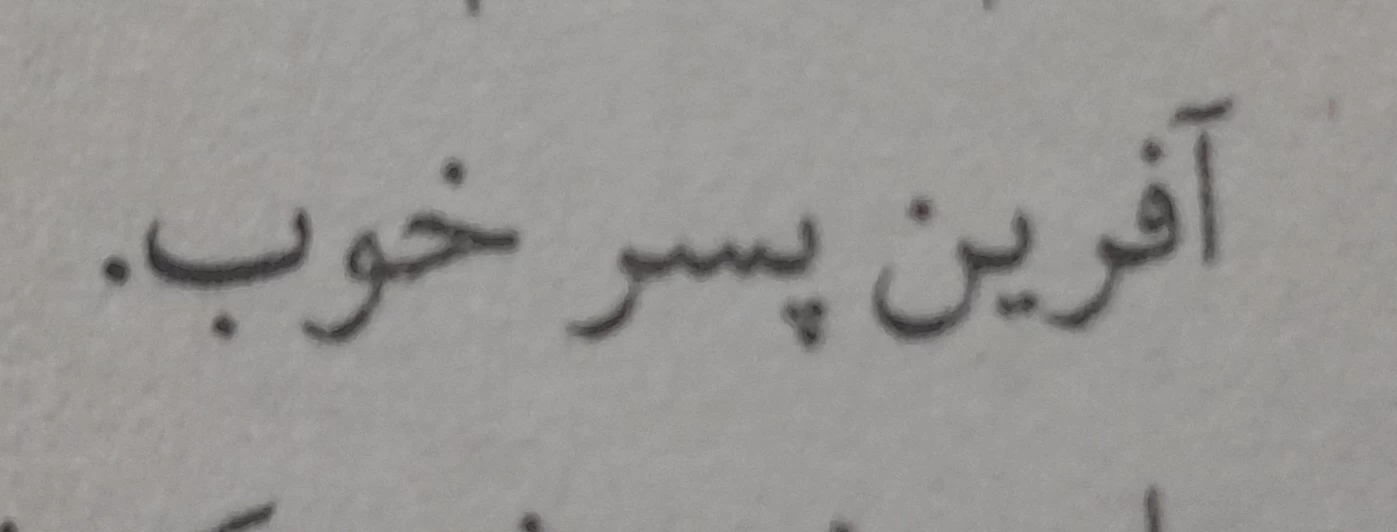 آفرین پسر خوب.